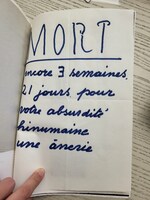 MORT
encore 3 semaines.
21 jours pour
votre absurdité
hinumaine
une ânerie